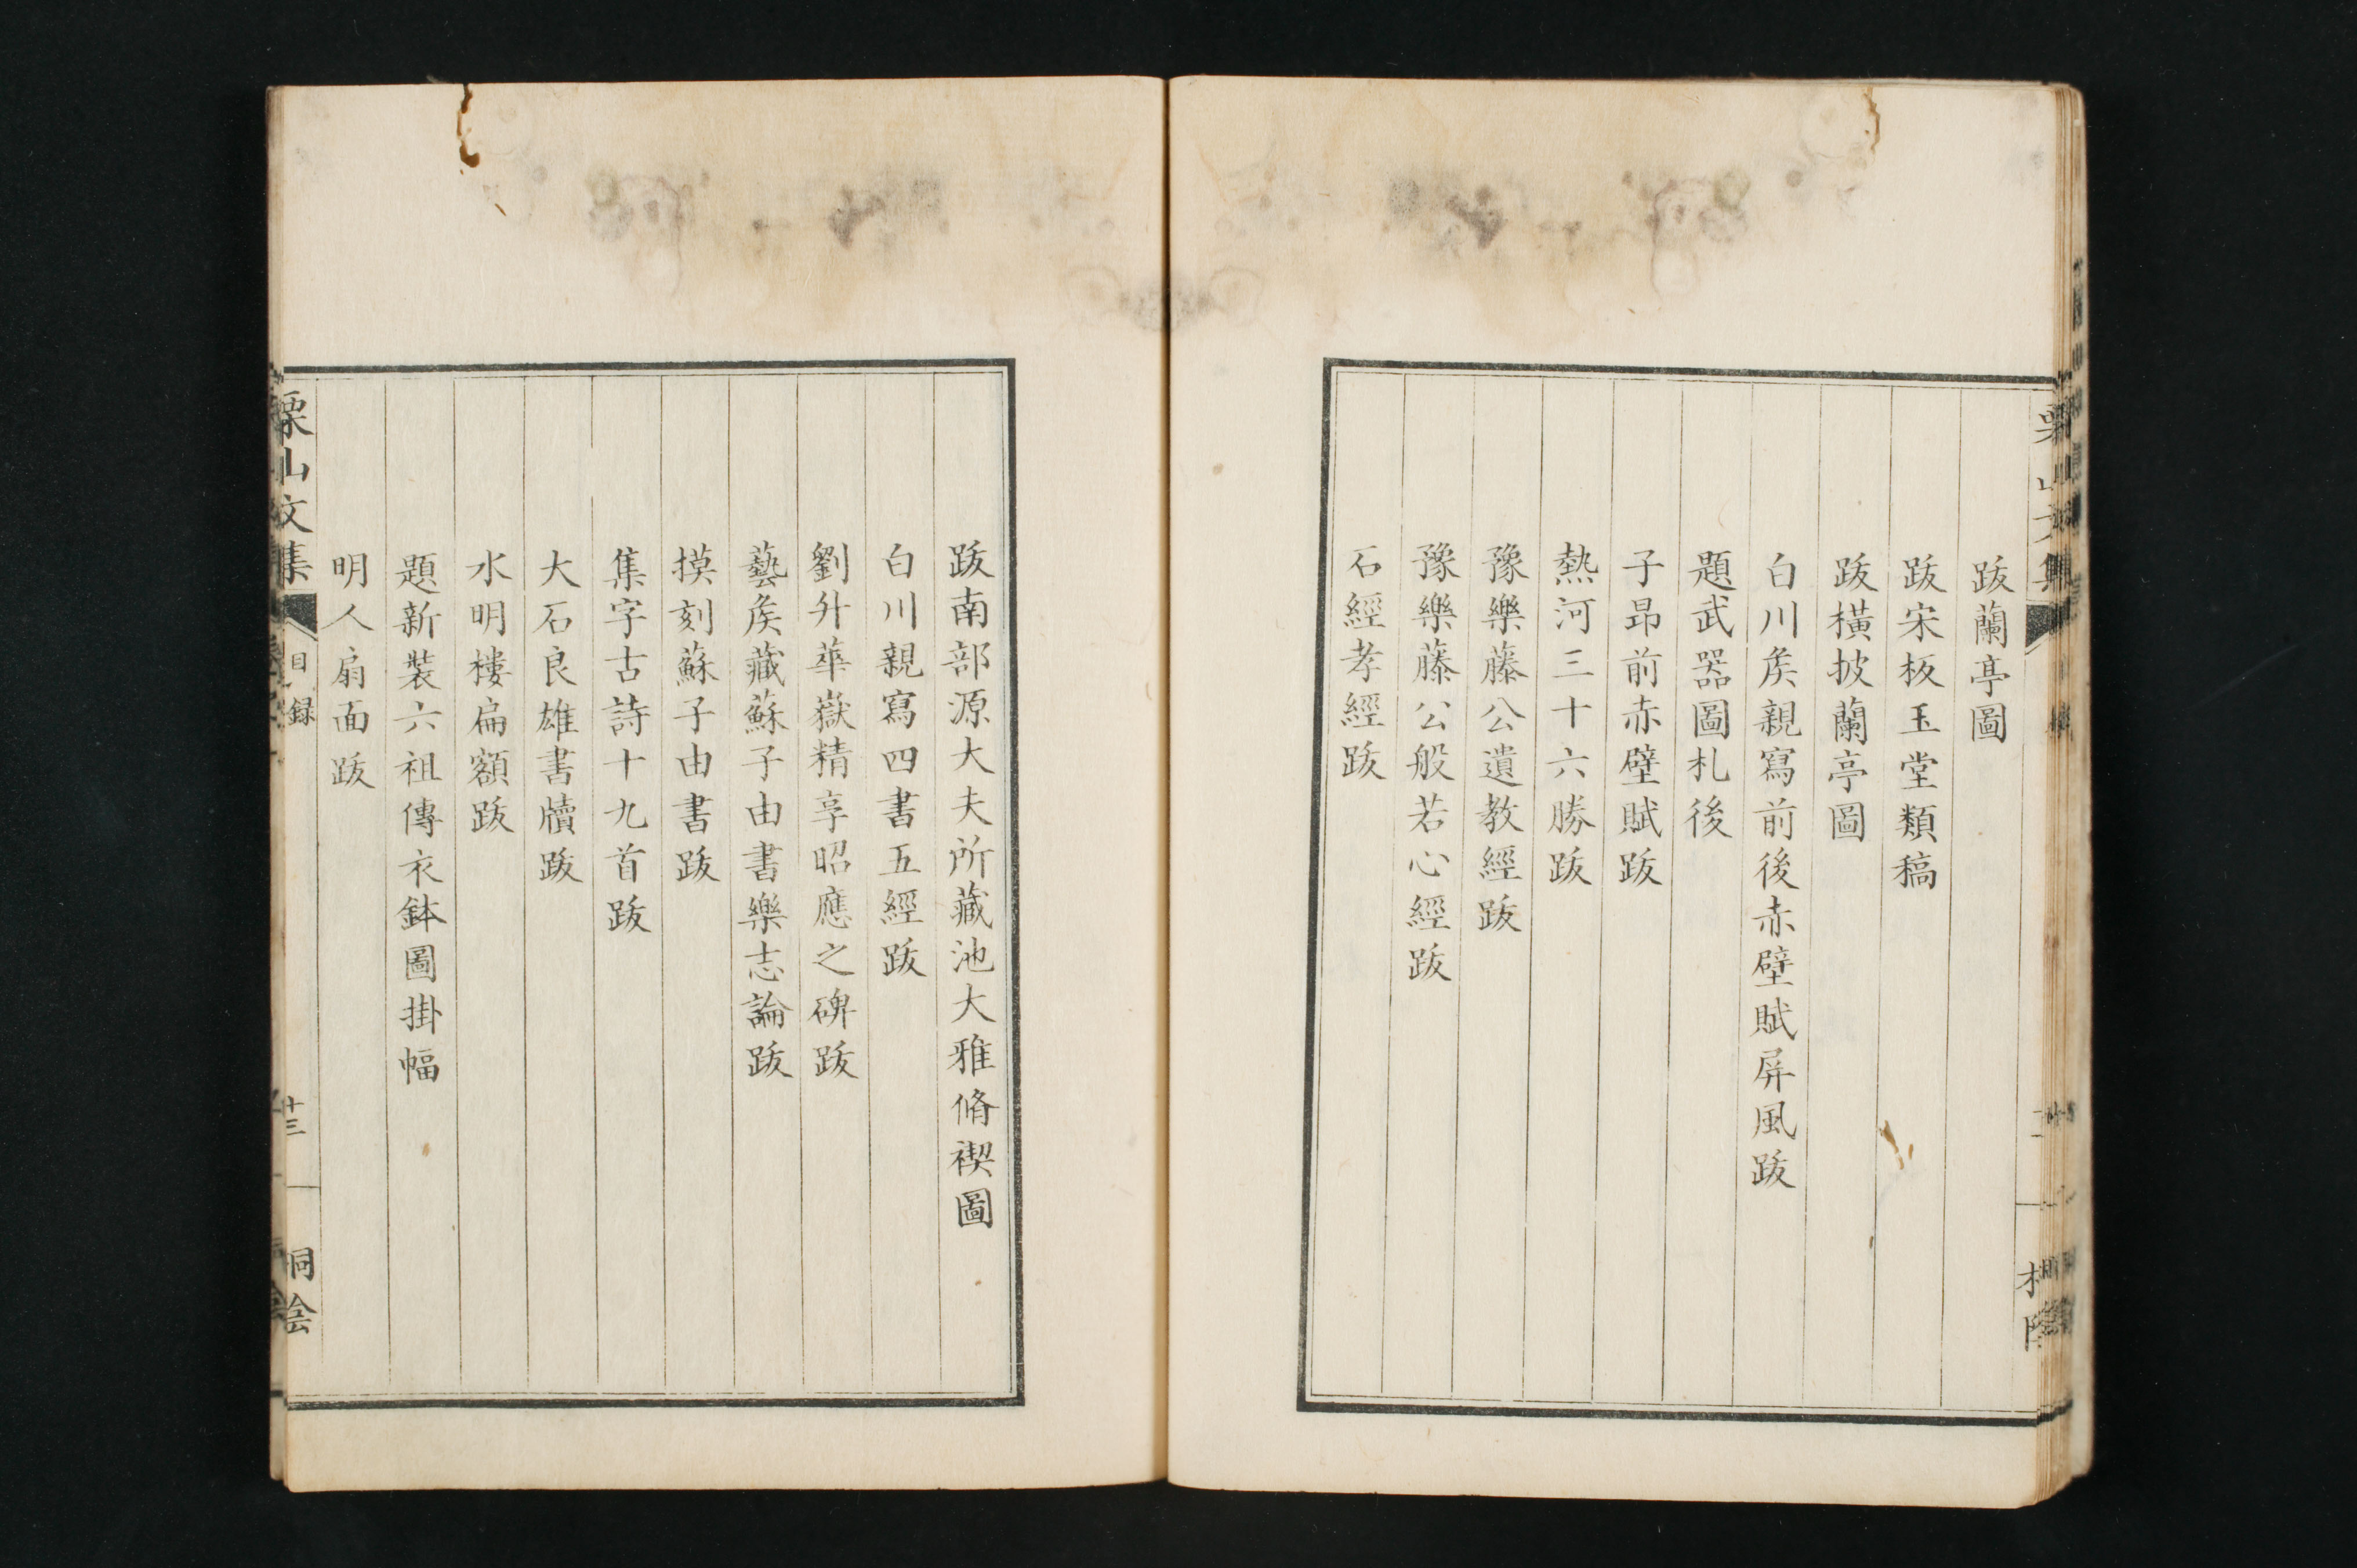 跋蘭亭圖
跋宋板玉堂類稿
跋橫披蘭亭圖
白川矦親寫前後赤壁賦屏風跋
題武器圖札後
子昂前赤壁賦跋
熱河三十六勝跋
豫樂藤公遺教經跋
豫樂藤公般若心經跋
石經孝經跋
跋南部源大夫所藏池大雅脩禊圖
白川親寫四書五經跋
劉升華嶽精享昭應之碑跋
藝矦藏蘇子由書樂志論跋
摸刻蘇子由書跋
集字古詩十九首跋
大石良雄書牘跋
水明樓扁額跋
題新裝六祖傳衣鉢圖掛幅
明人扇面跋
栗山文集
目録
十三